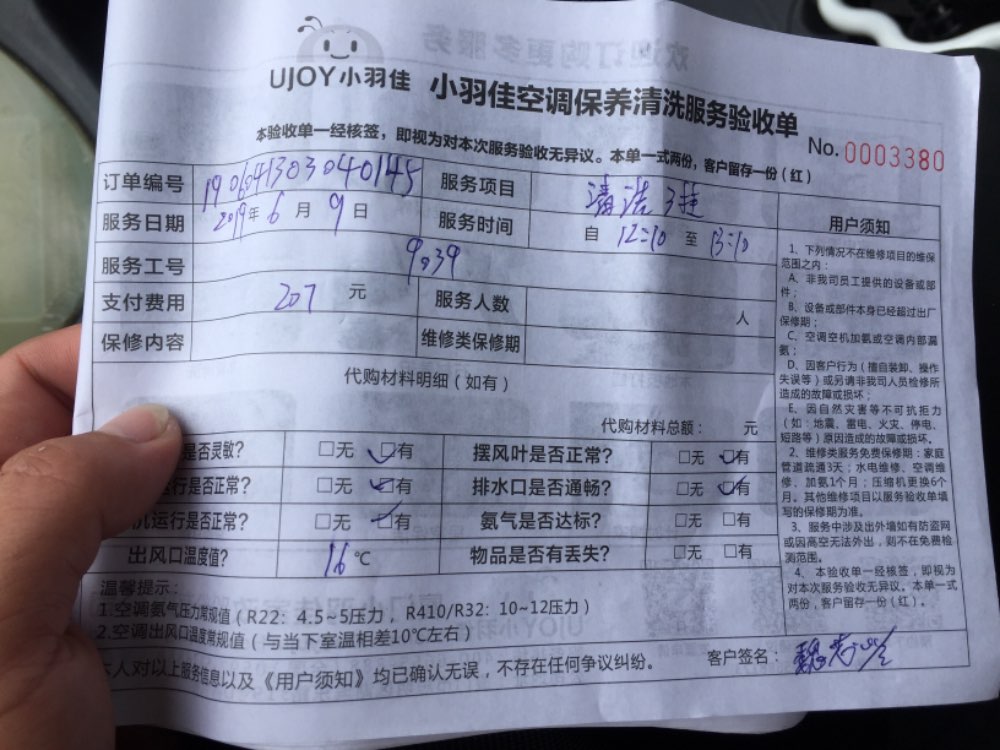 UJOY小羽佳 小羽佳空调保养清洗服务验收单
本验收单一经核签，即视为对本次服务验收无异议。本单一式两份，客户留存一份（红）
No.0003380
订单编号 1906041303040145 服务项目 清洗3挂
服务日期 2019年6月9日 服务时间 自 12:10 至 13:10
服务工号 9039
支付费用 207 元 服务人数 人
保修内容 维修类保修期
代购材料明细（如有）
代购材料总额： 元
是否灵敏? □无 □有 摆风叶是否正常? □无 □有
运行是否正常? □无 □有 排水口是否通畅? □无 □有
机运行是否正常? □无 □有 氨气是否达标? □无 □有
出风口温度值? 16℃ 物品是否有丢失? □无 □有
温馨提示：
1.空调氨气压力常规值（R22：4.5~5压力，R410/R32：10~12压力）
2.空调出风口温度常规值（与当下室温相差10℃左右）
本人对以上服务信息以及《用户须知》均已确认无误，不存在任何争议纠纷。 客户签名：
用户须知
1、下列情况不在维修项目的维保
范围之内：
A、非我司员工提供的设备或部
件；
B、设备或部件本身已经超过出厂
保修期；
C、空调空机加氨或空调内部漏
氨；
D、因客户行为（擅自装卸、操作
失误等）或另请非我司人员检修所
造成的故障或损坏；
E、因自然灾害等不可抗拒力
（如：地震、雷电、火灾、停电、
短路等）原因造成的故障或损坏。
2、维修类服务免费保修期：家庭
管道疏通3天；水电维修、空调维
修、加氨1个月；压缩机更换6个
月。其他维修项目以服务验收单填
写的保修期为准。
3、服务中涉及出外墙如有防盗网
或因高空无法外出，则不在免费检
测范围。
4、本验收单一经核签，即视为
对本次服务验收无异议。本单一式
两份，客户留存一份（红）。